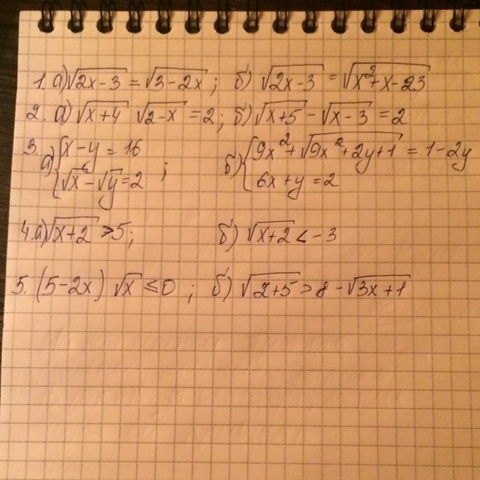 1. а) √(2x-3) = √(3-2x); б) √(2x-3) = √(x²+x-23)
2. а) √(x+4) √(2-x) = 2; б) √(x+5) - √(x-3) = 2
3. а) { x-y = 16 ; б) { 9x² + √(9x²+2y+1) = 1-2y
√x - √y = 2 6x+y = 2
4. а) √(x+2) > 5; б) √(x+2) < -3
5. (5-2x) √x ≤ 0 ; б) √(2+5) > 8 - √(3x+1)